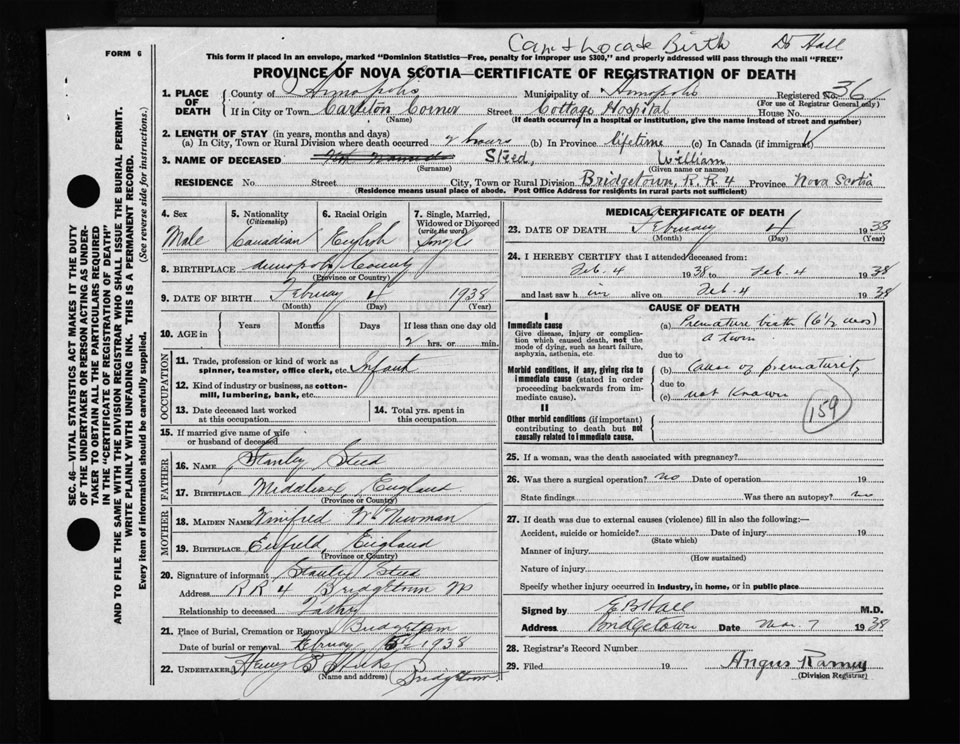 FORM 6
Can't Locate Birth Dr Hall
This form if placed in an envelope, marked "Dominion Statistics—Free, penalty for improper use $300," and properly addressed will pass through the mail "FREE"
PROVINCE OF NOVA SCOTIA—CERTIFICATE OF REGISTRATION OF DEATH
1. PLACE OF DEATH County of Annapolis Municipality of Annapolis Registered No. 36
(For use of Registrar General only)
If in City or Town Carleton Corner Street Cottage Hospital House No.
(Name) (If death occurred in a hospital or institution, give the name instead of street and number)
2. LENGTH OF STAY (in years, months and days)
(a) In City, Town or Rural Division where death occurred 2 hours (b) In Province lifetime (c) In Canada (if immigrant)
3. NAME OF DECEASED Steed, William
(Surname) (Given name or names)
RESIDENCE No Street City, Town or Rural Division Bridgetown, R.R. 4 Province Nova Scotia
(Residence means usual place of abode. Post Office Address for residents in rural parts not sufficient)
4. Sex Male
5. Nationality (Citizenship) Canadian
6. Racial Origin English
7. Single, Married, Widowed or Divorced (write the word) Single
8. BIRTHPLACE Annapolis County
(Province or Country)
9. DATE OF BIRTH February 4 1938
(Month) (Day) (Year)
10. AGE in Years Months Days If less than one day old
2 hrs. or min.
OCCUPATION
11. Trade, profession or kind of work as spinner, teamster, office clerk, etc. Infant
12. Kind of industry or business, as cotton-mill, lumbering, bank, etc.
13. Date deceased last worked at this occupation
14. Total yrs. spent in this occupation
15. If married give name of wife or husband of deceased
FATHER
16. NAME Stanley Steed
17. BIRTHPLACE Middlesex, England
(Province or Country)
MOTHER
18. MAIDEN NAME Winifred W. Newman
19. BIRTHPLACE Enfield, England
(Province or Country)
20. Signature of informant Stanley Steed
Address RR 4 Bridgetown NS
Relationship to deceased Father
21. Place of Burial, Cremation or Removal Bridgetown
Date of burial or removal February 5 1938
22. UNDERTAKER Henry B Hicks Bridgetown
(Name and address)
MEDICAL CERTIFICATE OF DEATH
23. DATE OF DEATH February 4 1938
(Month) (Day) (Year)
24. I HEREBY CERTIFY that I attended deceased from:
Feb. 4 1938 to Feb. 4 1938
and last saw h im alive on Feb. 4 1938
CAUSE OF DEATH
I
Immediate cause
Give disease, injury or complication which caused death, not the mode of dying, such as heart failure, asphyxia, asthenia, etc
(a) Premature birth (6 1/2 mos)
a twin
due to
Morbid conditions, if any, giving rise to immediate cause (stated in order proceeding backwards from immediate cause).
(b) Cause of prematurity
due to
(c) not known
159
II
Other morbid conditions (if important) contributing to death but not causally related to immediate cause.
25. If a woman, was the death associated with pregnancy?
26. Was there a surgical operation? no Date of operation 19
State findings Was there an autopsy? no
27. If death was due to external causes (violence) fill in also the following:—
Accident, suicide or homicide? Date of injury 19
(State which)
Manner of injury
(How sustained)
Nature of injury
Specify whether injury occurred in industry, in home, or in public place
Signed by E B Hall M.D.
Address Bridgetown Date Mar. 7 1938
28. Registrar's Record Number
29. Filed 19 Angus Ramey
(Division Registrar)
SEC. 46—VITAL STATISTICS ACT MAKES IT THE DUTY
OF THE UNDERTAKER OR PERSON ACTING AS UNDER-
TAKER TO OBTAIN ALL THE PARTICULARS REQUIRED
IN THE "CERTIFICATE OF REGISTRATION OF DEATH"
AND TO FILE THE SAME WITH THE DIVISION REGISTRAR WHO SHALL ISSUE THE BURIAL PERMIT.
WRITE PLAINLY WITH UNFADING INK. THIS IS A PERMANENT RECORD.
Every item of information should be carefully supplied. (See reverse side for instructions.)